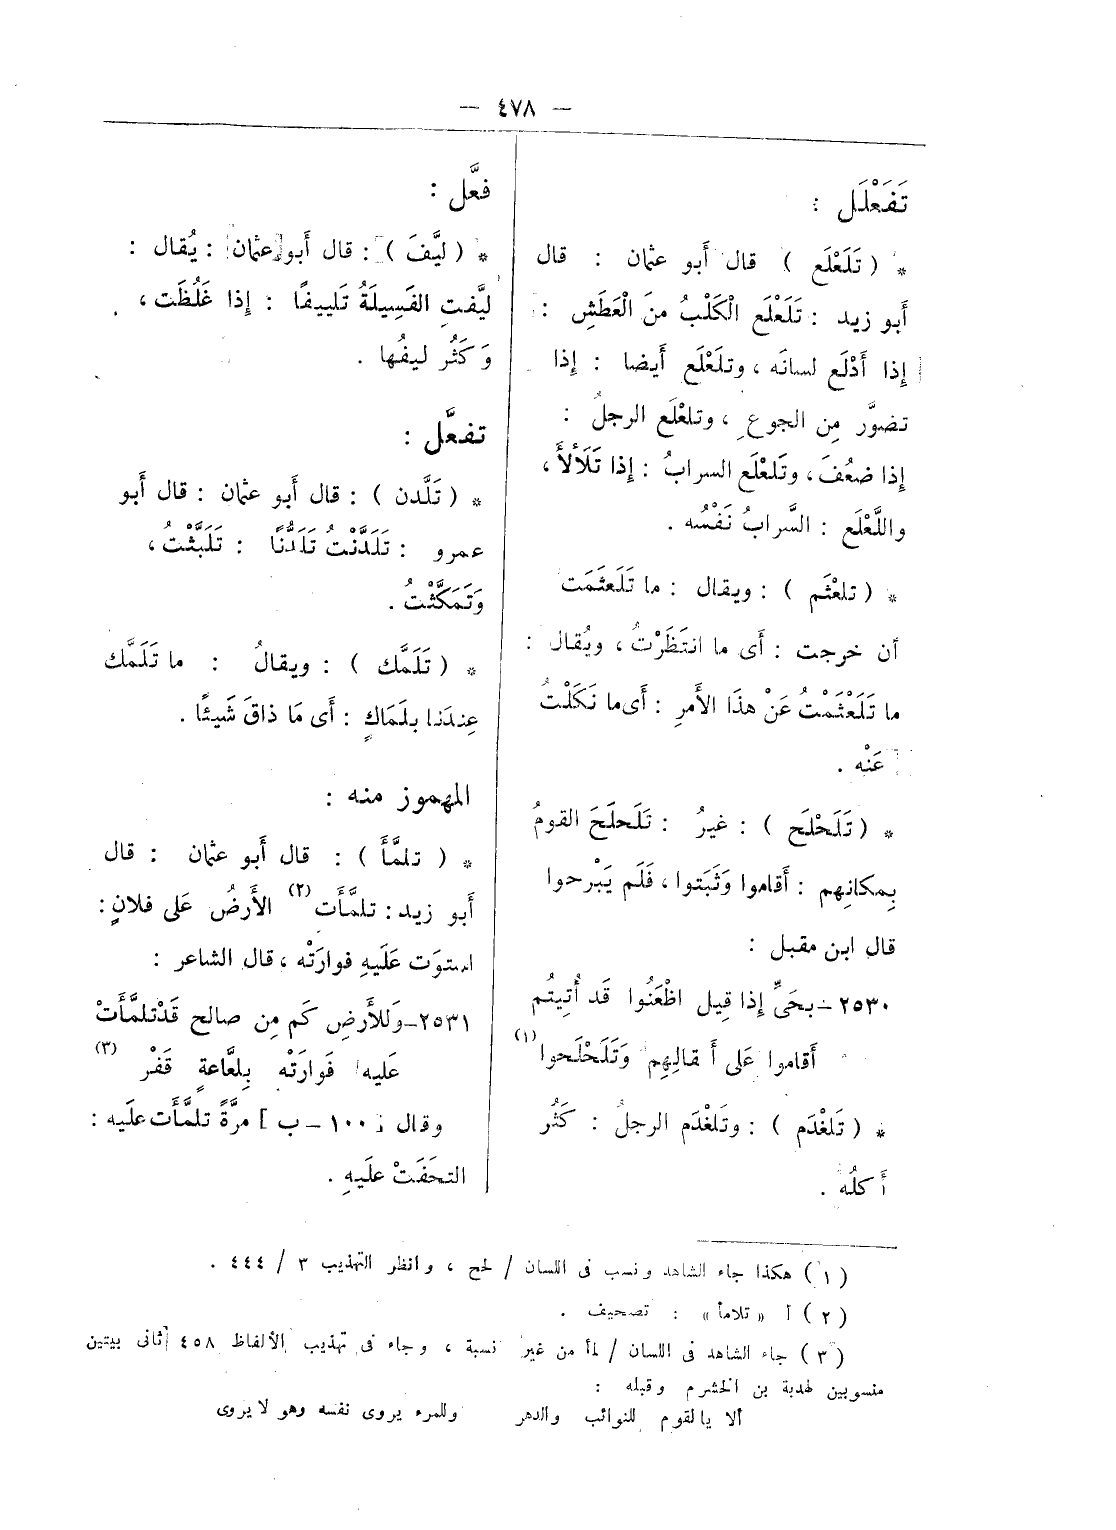 — ٤٧٨ —
تَفَعْلَل :
* ( تَلَعْلَع ) قال أَبو عثمان : قال
أَبو زيد : تَلَعْلَع الْكَلْبُ منَ الْعَطَشِ :
إِذا أَدْلَع لسانَه ، وتلَعْلَع أَيضا : إِذا
تضوَّر مِن الجوع ، وتلعْلَع الرجلُ :
إِذا ضعُفَ ، وتَلعْلَع السرابُ : إِذا تَلَأْلأَ ،
واللَّعْلَع : السَّرابُ نَفْسُه .
* ( تلعْثَم ) : ويقال : ما تَلَعثَمَت
أن خرجت : أَى ما انتَظَرْتُ ، ويُقال :
ما تَلَعْثَمْتُ عَنْ هذَا الأَمرِ : أَى ما نَكَلْتُ
عَنْه .
* ( تَلَحْلَح ) : غيرُ : تَلَحلَحَ القومُ
بِمكانِهم : أَقاموا وَثَبَتوا ، فَلَم يَبْرحوا
قال ابن مقبل :
٢٥٣٠ – بحَىٍّ إِذا قِيل اظْعَنُوا قَد أُتِيتُم
أَقاموا عَلى أَ ثقالِهِم وَتَلَحْلَحوا (١)
* ( تَلغْدَم ) : وتَلغْدَم الرجلُ : كَثُر
أَكلُه .
فعَّل :
* ( ليَّفَ ) : قال أَبو عثمان : يُقال :
ليَّفتِ الفَسِيلَةُ تَلييفًا : إِذا غَلُظَت ،
وَكَثُر ليفُها .
تفعَّل :
* ( تَلَّدن ) : قال أَبو عثمان : قال أَبو
عمرو : تَلَدَّنْتُ تَلَدُّنًا : تَلَبَّثْتُ ،
وَتَمَكَّثْتُ .
* ( تَلَمَّك ) : ويقالُ : ما تَلَمَّك
عِندَنا بلَمَاكٍ : أَى مَا ذاقَ شَيئًا .
المهموز منه :
* ( تلمَّأَ ) : قال أَبو عثمان : قال
أَبو زيد : تلمَّأَت (٢) الأَرضُ عَلى فلانٍ :
استوَت عَلَيهِ فوارَتْه ، قال الشاعر :
٢٥٣١ – وَللأَرضِ كَم مِن صالح قَدْ تلمَّأَتْ
عَليه فَوارَتْه بِلمَّاعةٍ قَفْر (٣)
وقال [ ١٠٠ – ب ] مرَّةً تلمَّأَت علَيه :
التحَفَتْ علَيهِ .
( ١ ) هكذا جاء الشاهد ونسب فى اللسان / لحح ، وانظر التهذيب ٣ / ٤٤٤ .
( ٢ ) أ « تلامأ » : تصحيف .
( ٣ ) جاء الشاهد فى اللسان / لمأ من غير نسبة ، وجاء فى تهذيب الألفاظ ٤٥٨ ثانى بيتين
منسوبين لهدبة بن الخشرم وقبله :
ألا يا لقوم للنوائب والدهر وللمرء يروى نفسه وهو لا يروى